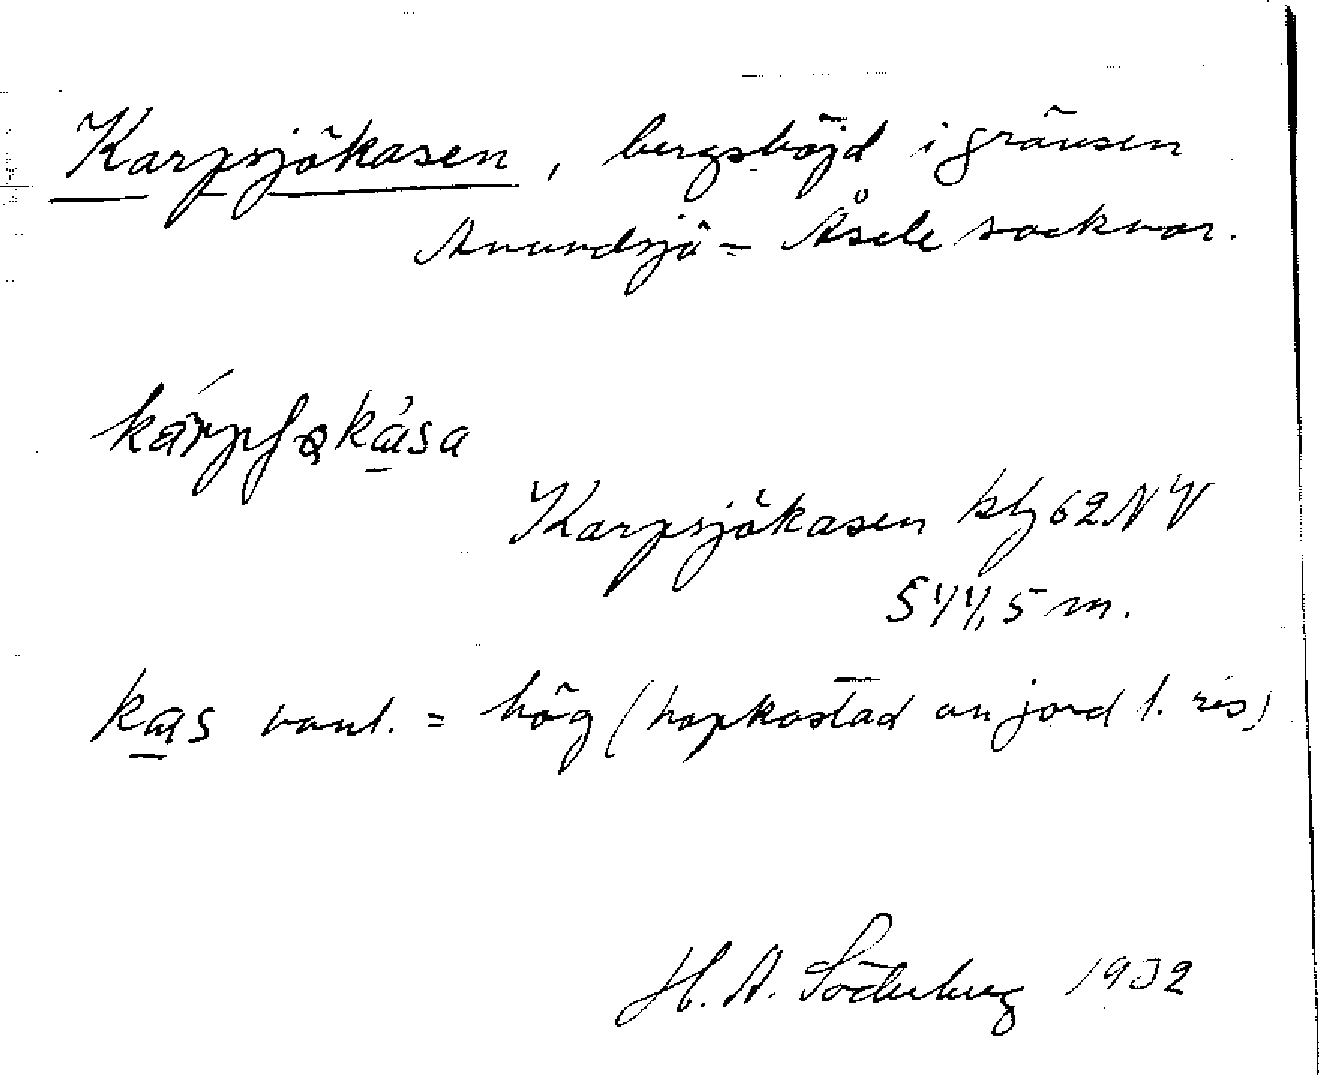 Karpsjökasen, bergshöjd i gränsen
Anundsjö - Åsele socknar.
Karpsjökasen kbl 62 NV
544,5 m.
kas vanl. = hög (hopkastad av jord l. ris)
H. A. Söderberg 1932